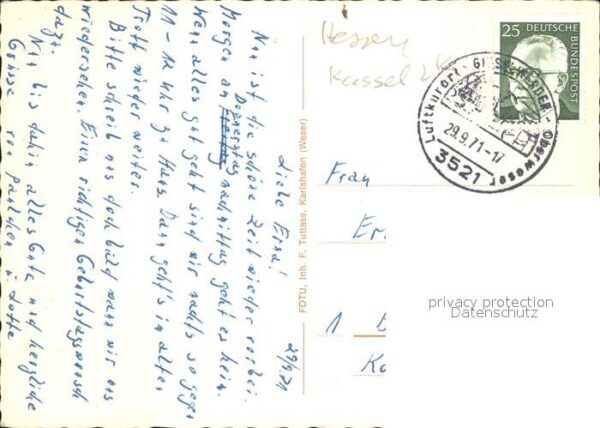 29/9.71
Liebe Erna!
Nun ist die schöne Zeit wieder vorbei.
Morgen am Donnerstag nachmittag geht es heim.
Wenn alles gut geht sind wir nachts so gegen
11-12 Uhr zu Haus. Dann geht's im alten
Trott wieder weiter.
Bitte schreib uns doch bald wann wir uns
wiedersehen. Einen richtigen Geburtstagswunsch
dazu.
Nun bis dahin alles Gute und herzliche
Grüsse von
u. Lotte
FOTU, Inh. F. Tuttass, Karlshafen (Weser)
Hessen
Kassel
25 DEUTSCHE
BUNDESPOST
Luftkurort Oberweser
29.9.71-17
3521
Frau
Er
1 B
Ko
privacy protection
Datenschutz